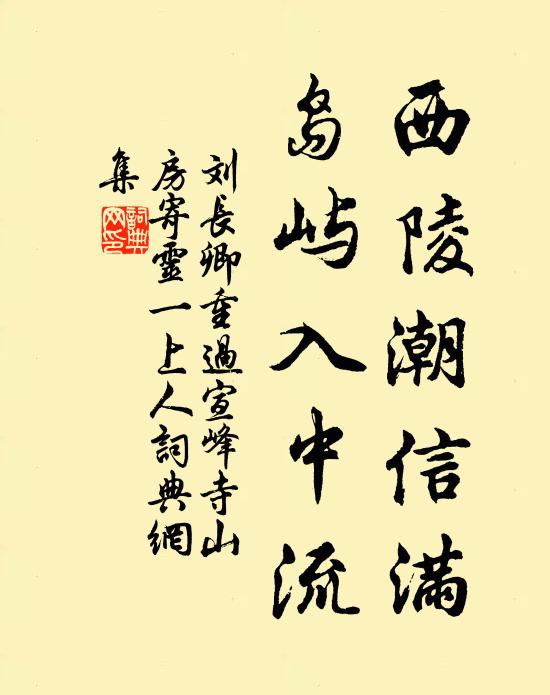 西陵潮信满
岛屿入中流
刘長卿重過宣峰寺山
房寄靈一上人詞典網
集
詞典
网印